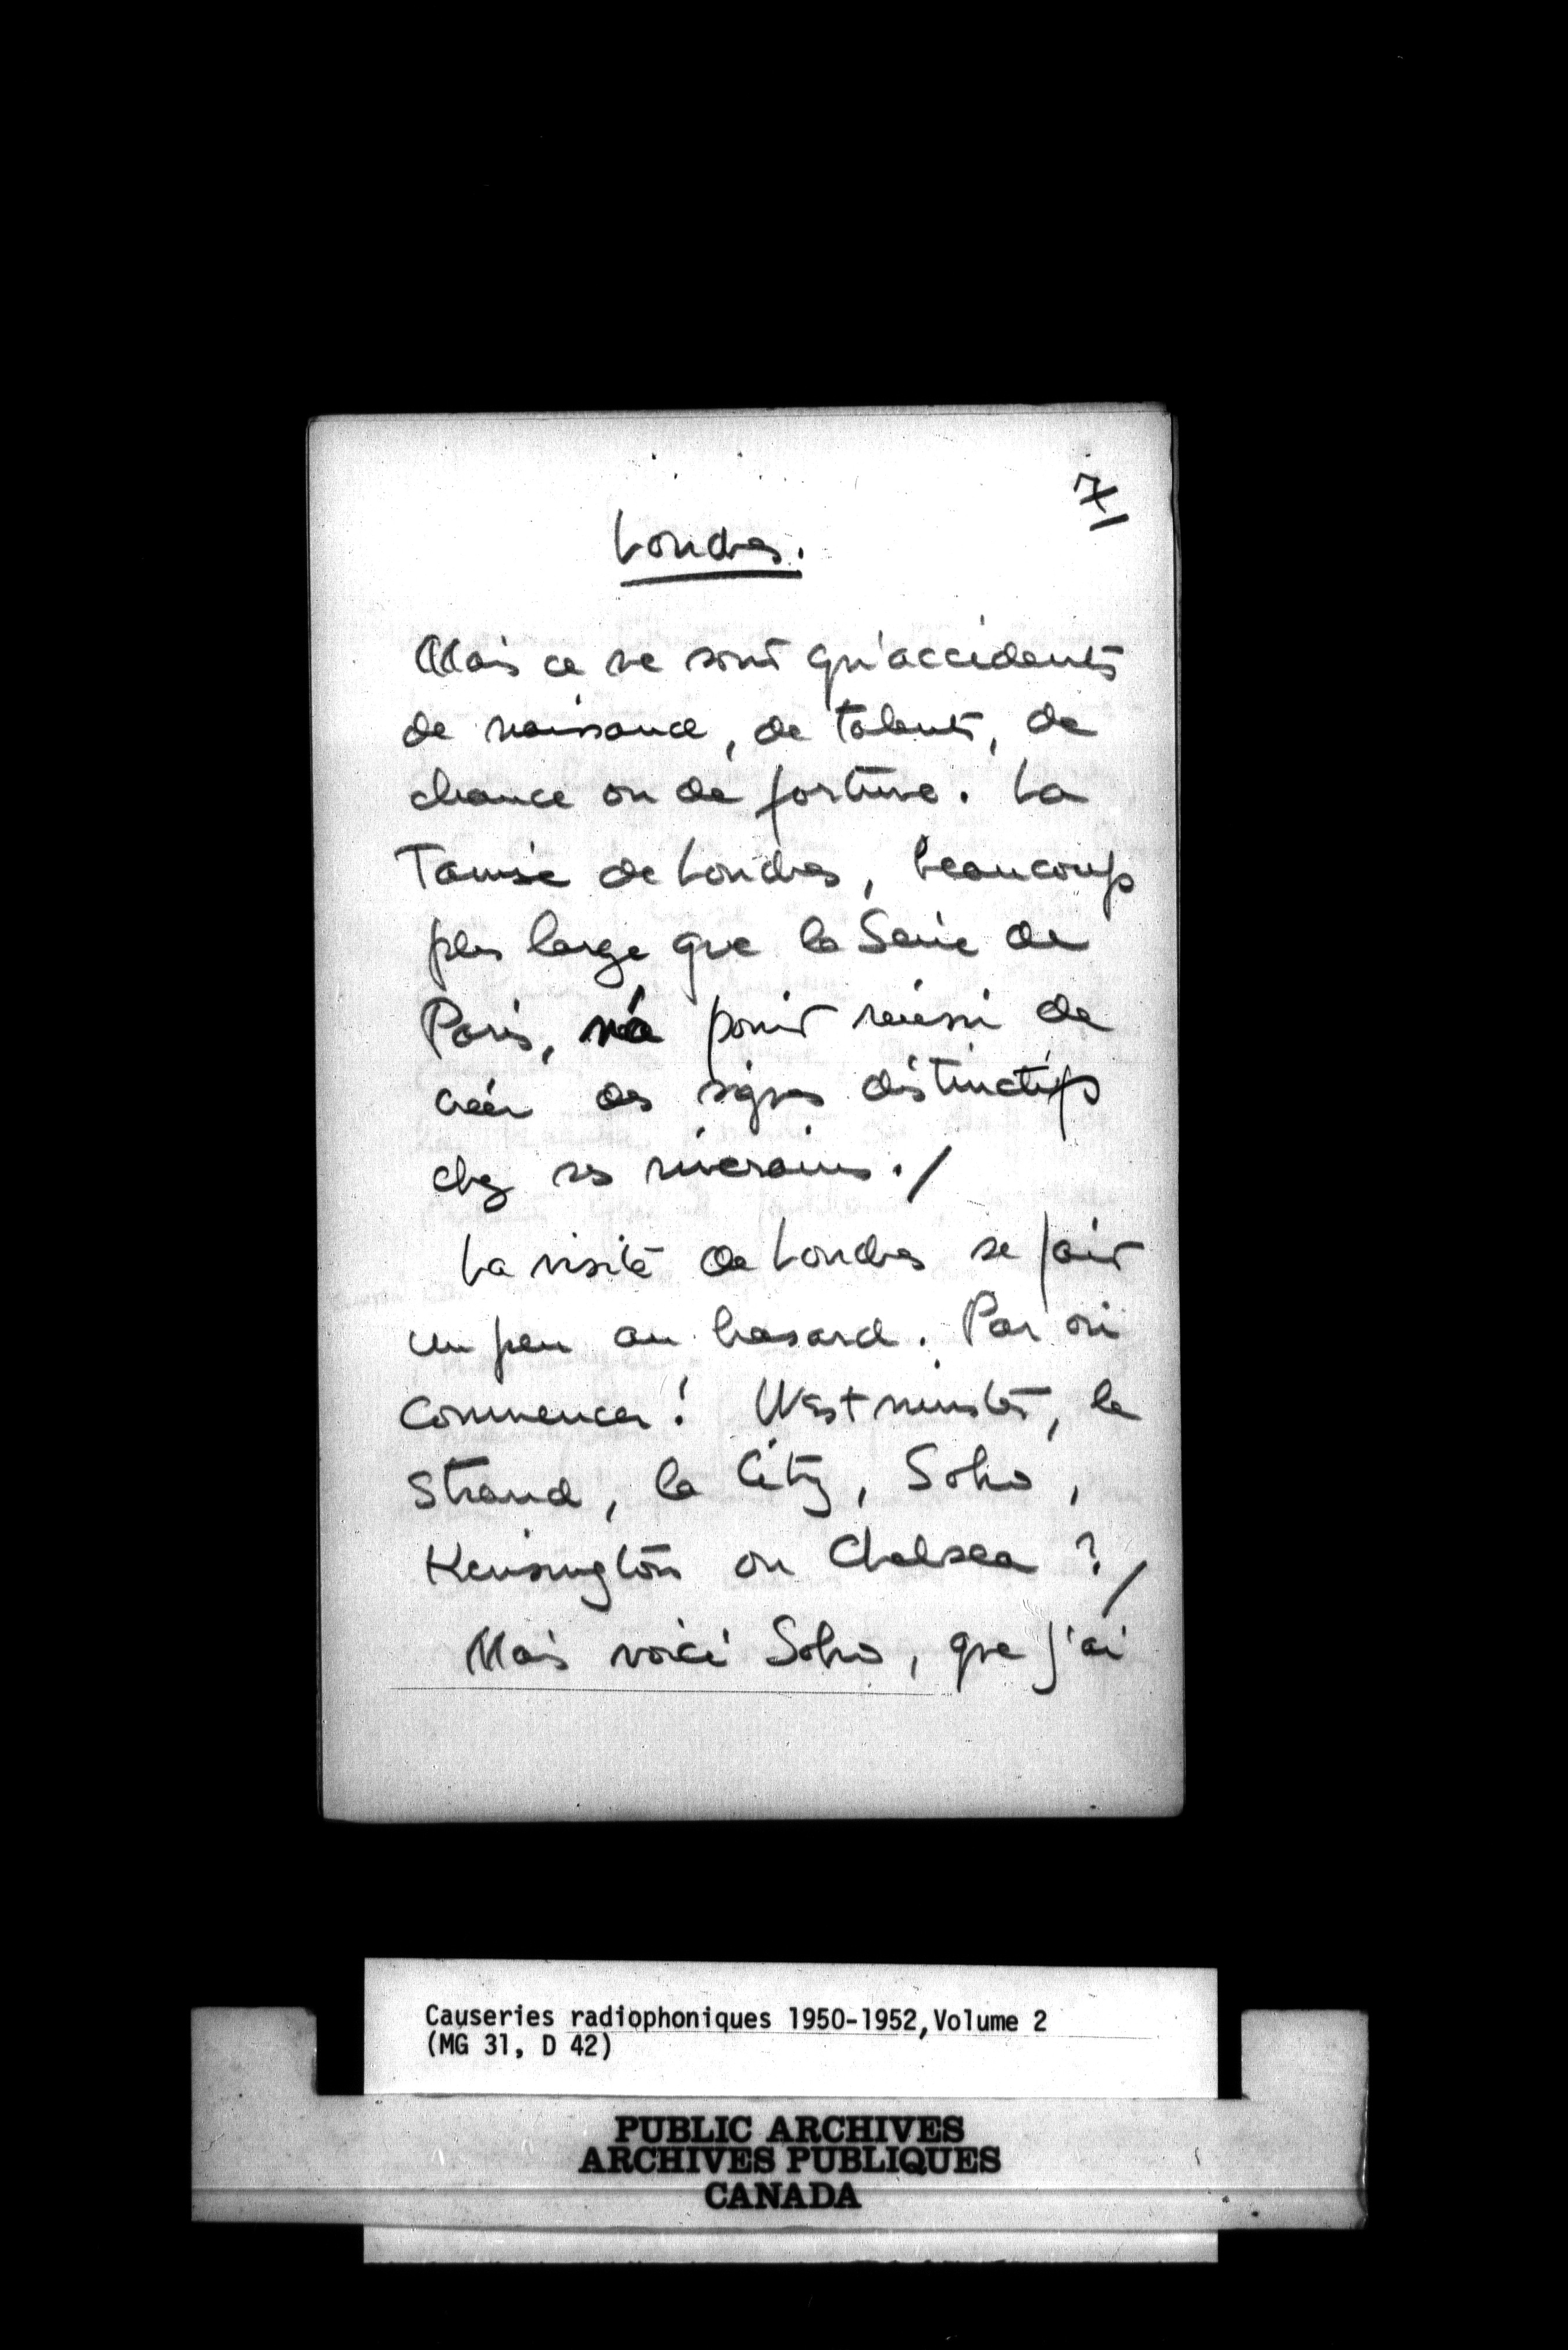 7/
Londres.
Mais ce ne sont qu'accidents
de naissance, de talents, de
chance ou de fortune. La
Tamise de Londres, beaucoup
plus large que la Seine de
Paris, n'a point réussi de
créer des signes distinctifs
chez ses riverains./
La visite de Londres se fait
un peu au hasard. Par où
commencer! Westminster, le
Strand, la City, Soho,
Kensington ou Chelsea ?/
Mais voici Soho, que j'ai
Causeries radiophoniques 1950-1952, Volume 2
(MG 31, D 42)
PUBLIC ARCHIVES
ARCHIVES PUBLIQUES
CANADA